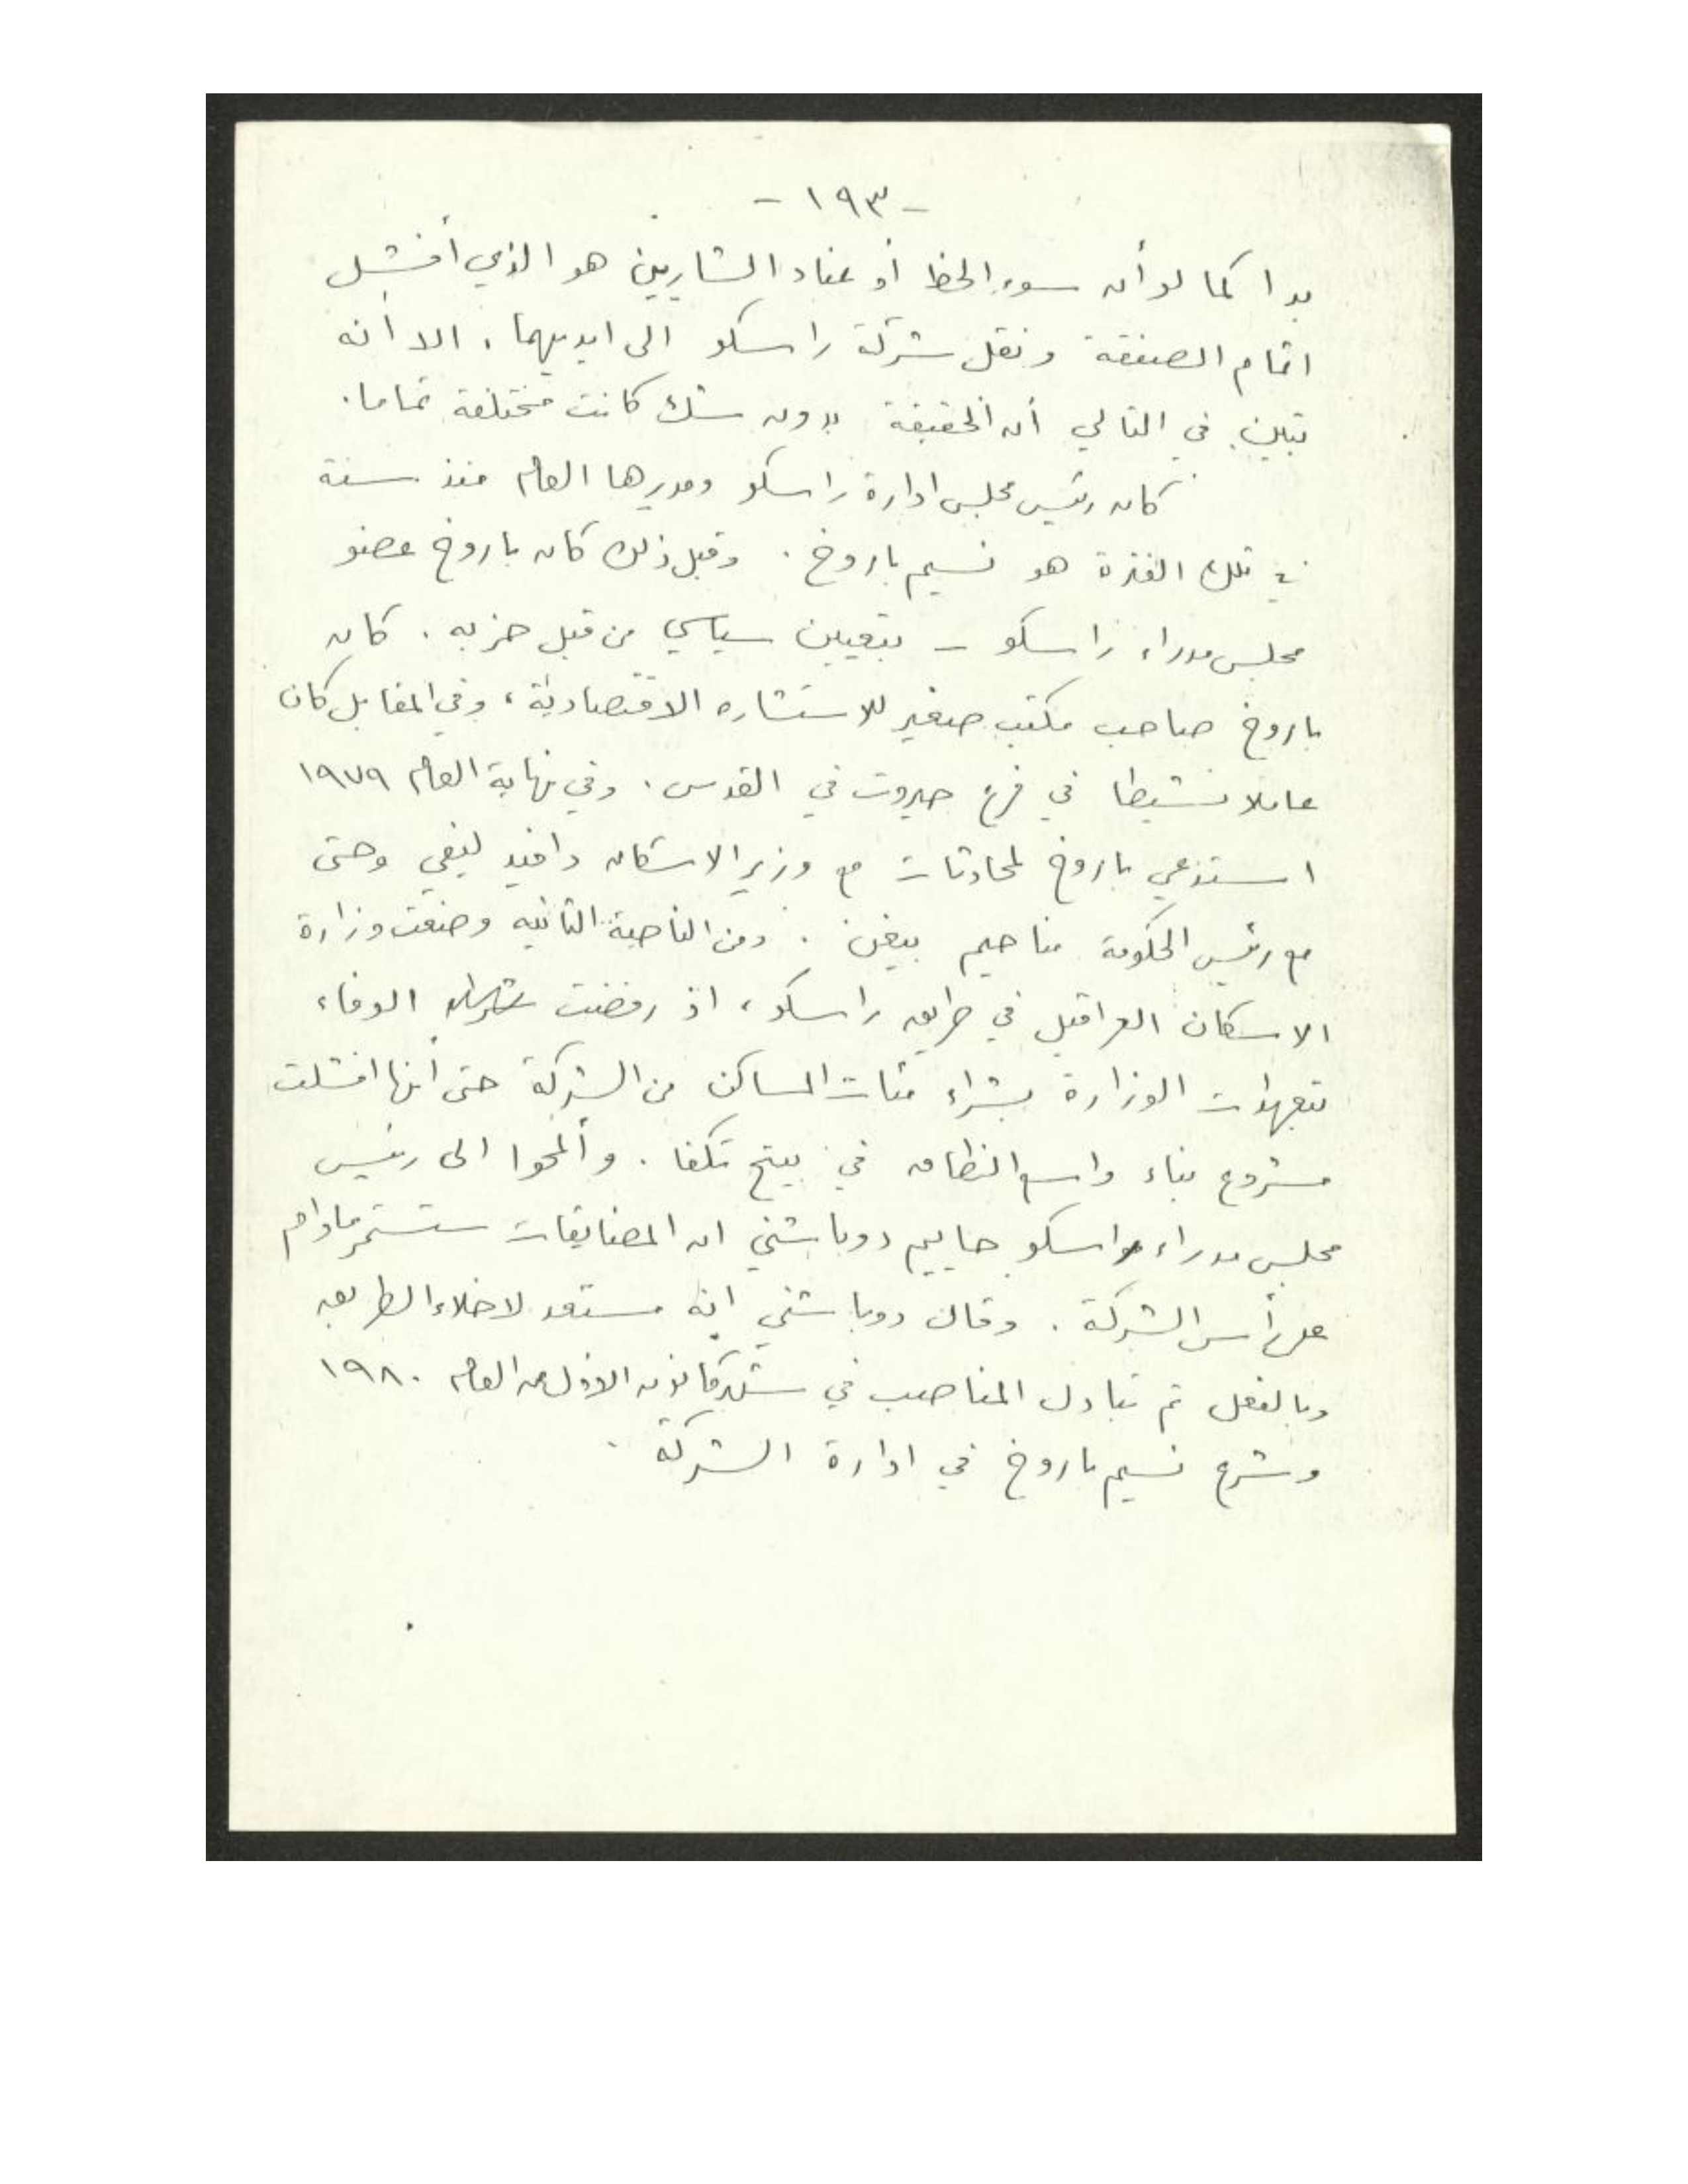 - ١٩٣ -
بدا كما لو أن سوء الحظ أو عناد الشاريين هو الذي أفشل
اتمام الصفقة ونقل شركة راسكو الى ايديهما . الا أنه
تبين في التالي أن الحقيقة بدون شك كانت مختلفة تماما .
كان رئيس مجلس ادارة راسكو ومديرها العام منذ سنة
في تلك الفترة هو نسيم باروخ . وقبل ذلك كان باروخ عضو
مجلس مدراء راسكو - بتعيين سياسي من قبل حزبه . كان
باروخ صاحب مكتب صغير للاستشاره الاقتصادية ، وفي المقابل كان
عاملا نشيطا في فرع حيروت في القدس . وفي نهاية العام ١٩٧٩
استدعي باروخ لمحادثات مع وزير الاسكان دافيد ليفي وحتى
مع رئيس الحكومة مناحيم بيغن . ومن الناحية الثانيه وضعت وزارة
الاسكان العراقيل في طريق راسكو ، اذ رفضت الوفاء
بتعهدات الوزارة بشراء مئات المساكن من الشركة حتى أنها افشلت
مشروع بناء واسع النطاق في بيتح تكفا . وألمحوا الى رئيس
مجلس مدراء راسكو حاييم دوباشني ان المضايقات ستستمر مادام
على رأس الشركة . وقال دوباشني انه مستعد لاخلاء الطريق
وبالفعل تم تبادل المناصب في شهر كانون الاول من العام ١٩٨٠
وشرع نسيم باروخ في ادارة الشركة .